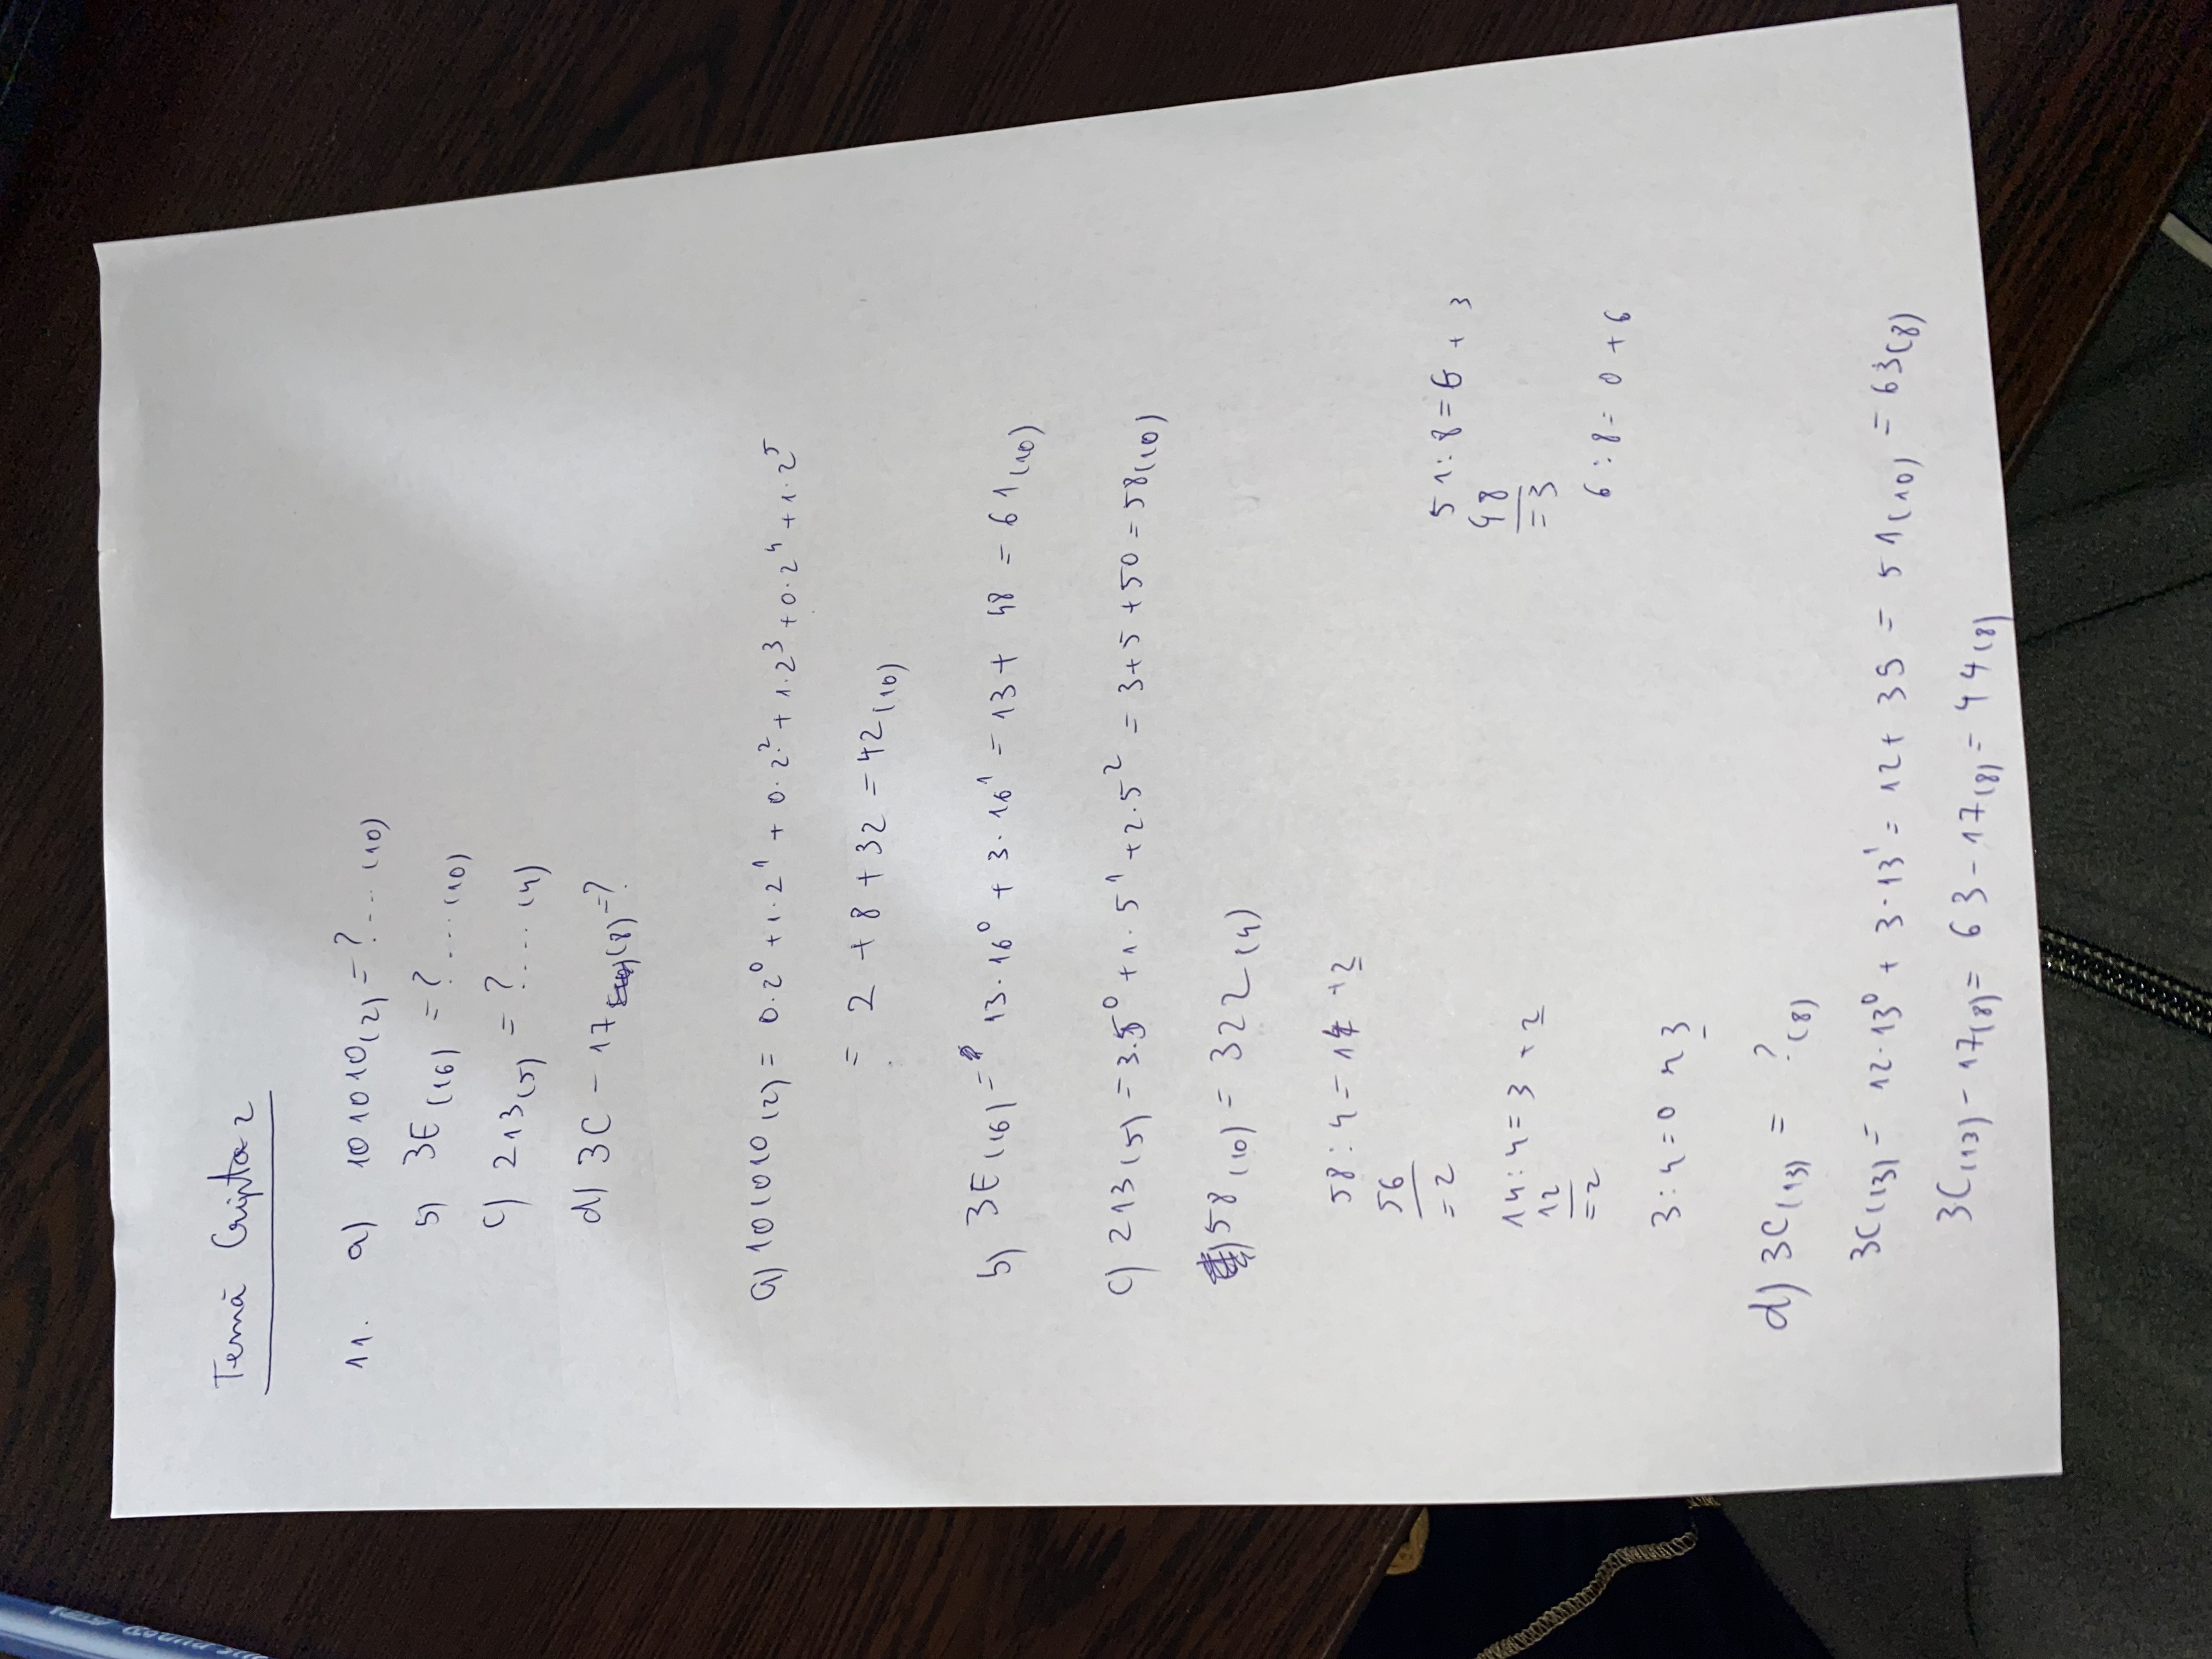 Temă Cripto 2
11. a) 101010(2) = ? ... (10)
b) 3E (16) = ? ... (10)
c) 213(5) = ? .... (4)
d) 3C - 17 (8) = ?
a) 101010 (2) = 0·2⁰ + 1·2¹ + 0·2² + 1·2³ + 0·2⁴ + 1·2⁵
= 2 + 8 + 32 = 42(10)
b) 3E (16) = 13·16⁰ + 3·16¹ = 13 + 48 = 61(10)
c) 213(5) = 3·5⁰ + 1·5¹ + 2·5² = 3+5+50 = 58(10)
58 (10) = 322 (4)
58 : 4 = 14 + 2
56
= 2
14 : 4 = 3 + 2
12
= 2
3 : 4 = 0 r 3
51 : 8 = 6 + 3
48
= 3
6 : 8 = 0 + 6
d) 3C(13) = ?(8)
3C(13) = 12·13⁰ + 3·13¹ = 12 + 39 = 51(10) = 63(8)
3C(13) - 17(8) = 63 - 17(8) = 44(8)